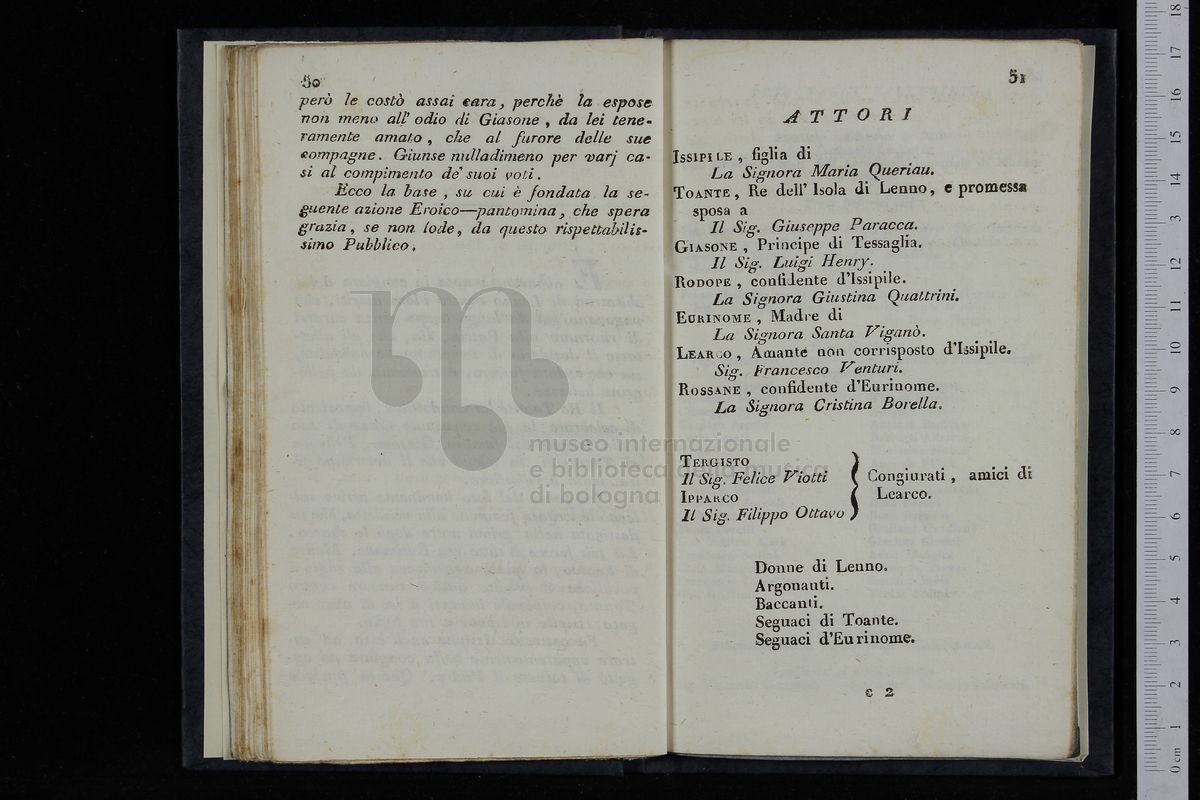 50
però le costò assai cara, perchè la espose
non meno all' odio di Giasone, da lei tene-
ramente amato, che al furore delle sue
compagne. Giunse nulladimeno per varj ca-
si al compimento de' suoi voti.
Ecco la base, su cui è fondata la se-
guente azione Eroico—pantomina, che spera
grazia, se non lode, da questo rispettabilis-
simo Pubblico.
51
ATTORI
ISSIPILE, figlia di
La Signora Maria Queriau.
TOANTE, Re dell' Isola di Lenno, e promessa
sposa a
Il Sig. Giuseppe Paracca.
GIASONE, Principe di Tessaglia.
Il Sig. Luigi Henry.
RODOPE, confidente d'Issipile.
La Signora Giustina Quattrini.
EURINOME, Madre di
La Signora Santa Viganò.
LEARCO, Amante non corrisposto d'Issipile.
Sig. Francesco Venturi.
ROSSANE, confidente d'Eurinome.
La Signora Cristina Borella.
TERGISTO
Il Sig. Felice Viotti
IPPARCO
Il Sig. Filippo Ottavo
Congiurati, amici di
Learco.
Donne di Lenno.
Argonauti.
Baccanti.
Seguaci di Toante.
Seguaci d'Eurinome.
c 2
museo internazionale
e biblioteca della musica
di bologna
0 cm 1 2 3 4 5 6 7 8 9 10 11 12 13 14 15 16 17 18